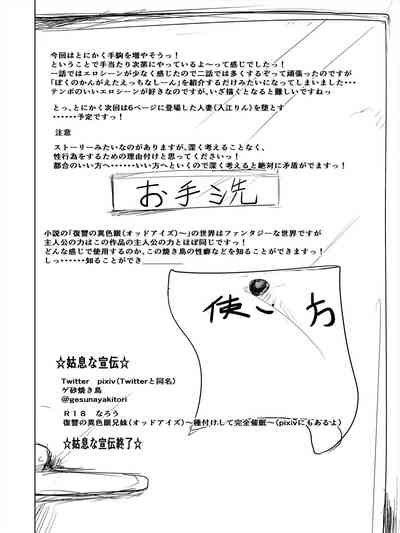 今回はとにかく手駒を増やそうっ！
ということで手当たり次第にやっているよ～って感じでしたっ！
一話ではエロシーンが少なく感じたので二話では多くするぞって頑張ったのですが
「ぼくのかんがえたえっちなしーん」を紹介するだけみたいになってしまいました・・・
テンポのいいエロシーンが好きなのですが、いざ描くとなると難しいですねっ
とっ、とにかく次回は6ページに登場した人妻(入江りん)を堕とす
・・・・・・予定ですっ！
注意
ストーリーみたいなのがありますが、深く考えることなく、
性行為をするための理由付けと思ってくださいっ！
都合のいい方へ・・・・・・いい方へといくので深く考えると絶対に矛盾がでますっ！
お手洗
小説の「復讐の異色眼(オッドアイズ)～」の世界はファンタジーな世界ですが
主人公の力はこの作品の主人公の力とほぼ同じですっ！
どんな感じで使用するのか、この焼き鳥の性癖などを知ることができますっ！
しっ・・・・・・知ることができ
使い方
☆姑息な宣伝☆
Twitter pixiv(Twitterと同名)
ゲ砂焼き鳥
@gesunayakitori
R18 なろう
復讐の異色眼兄妹(オッドアイズ)～種付けして完全催眠～(pixivにもあるよ)
☆姑息な宣伝終了☆